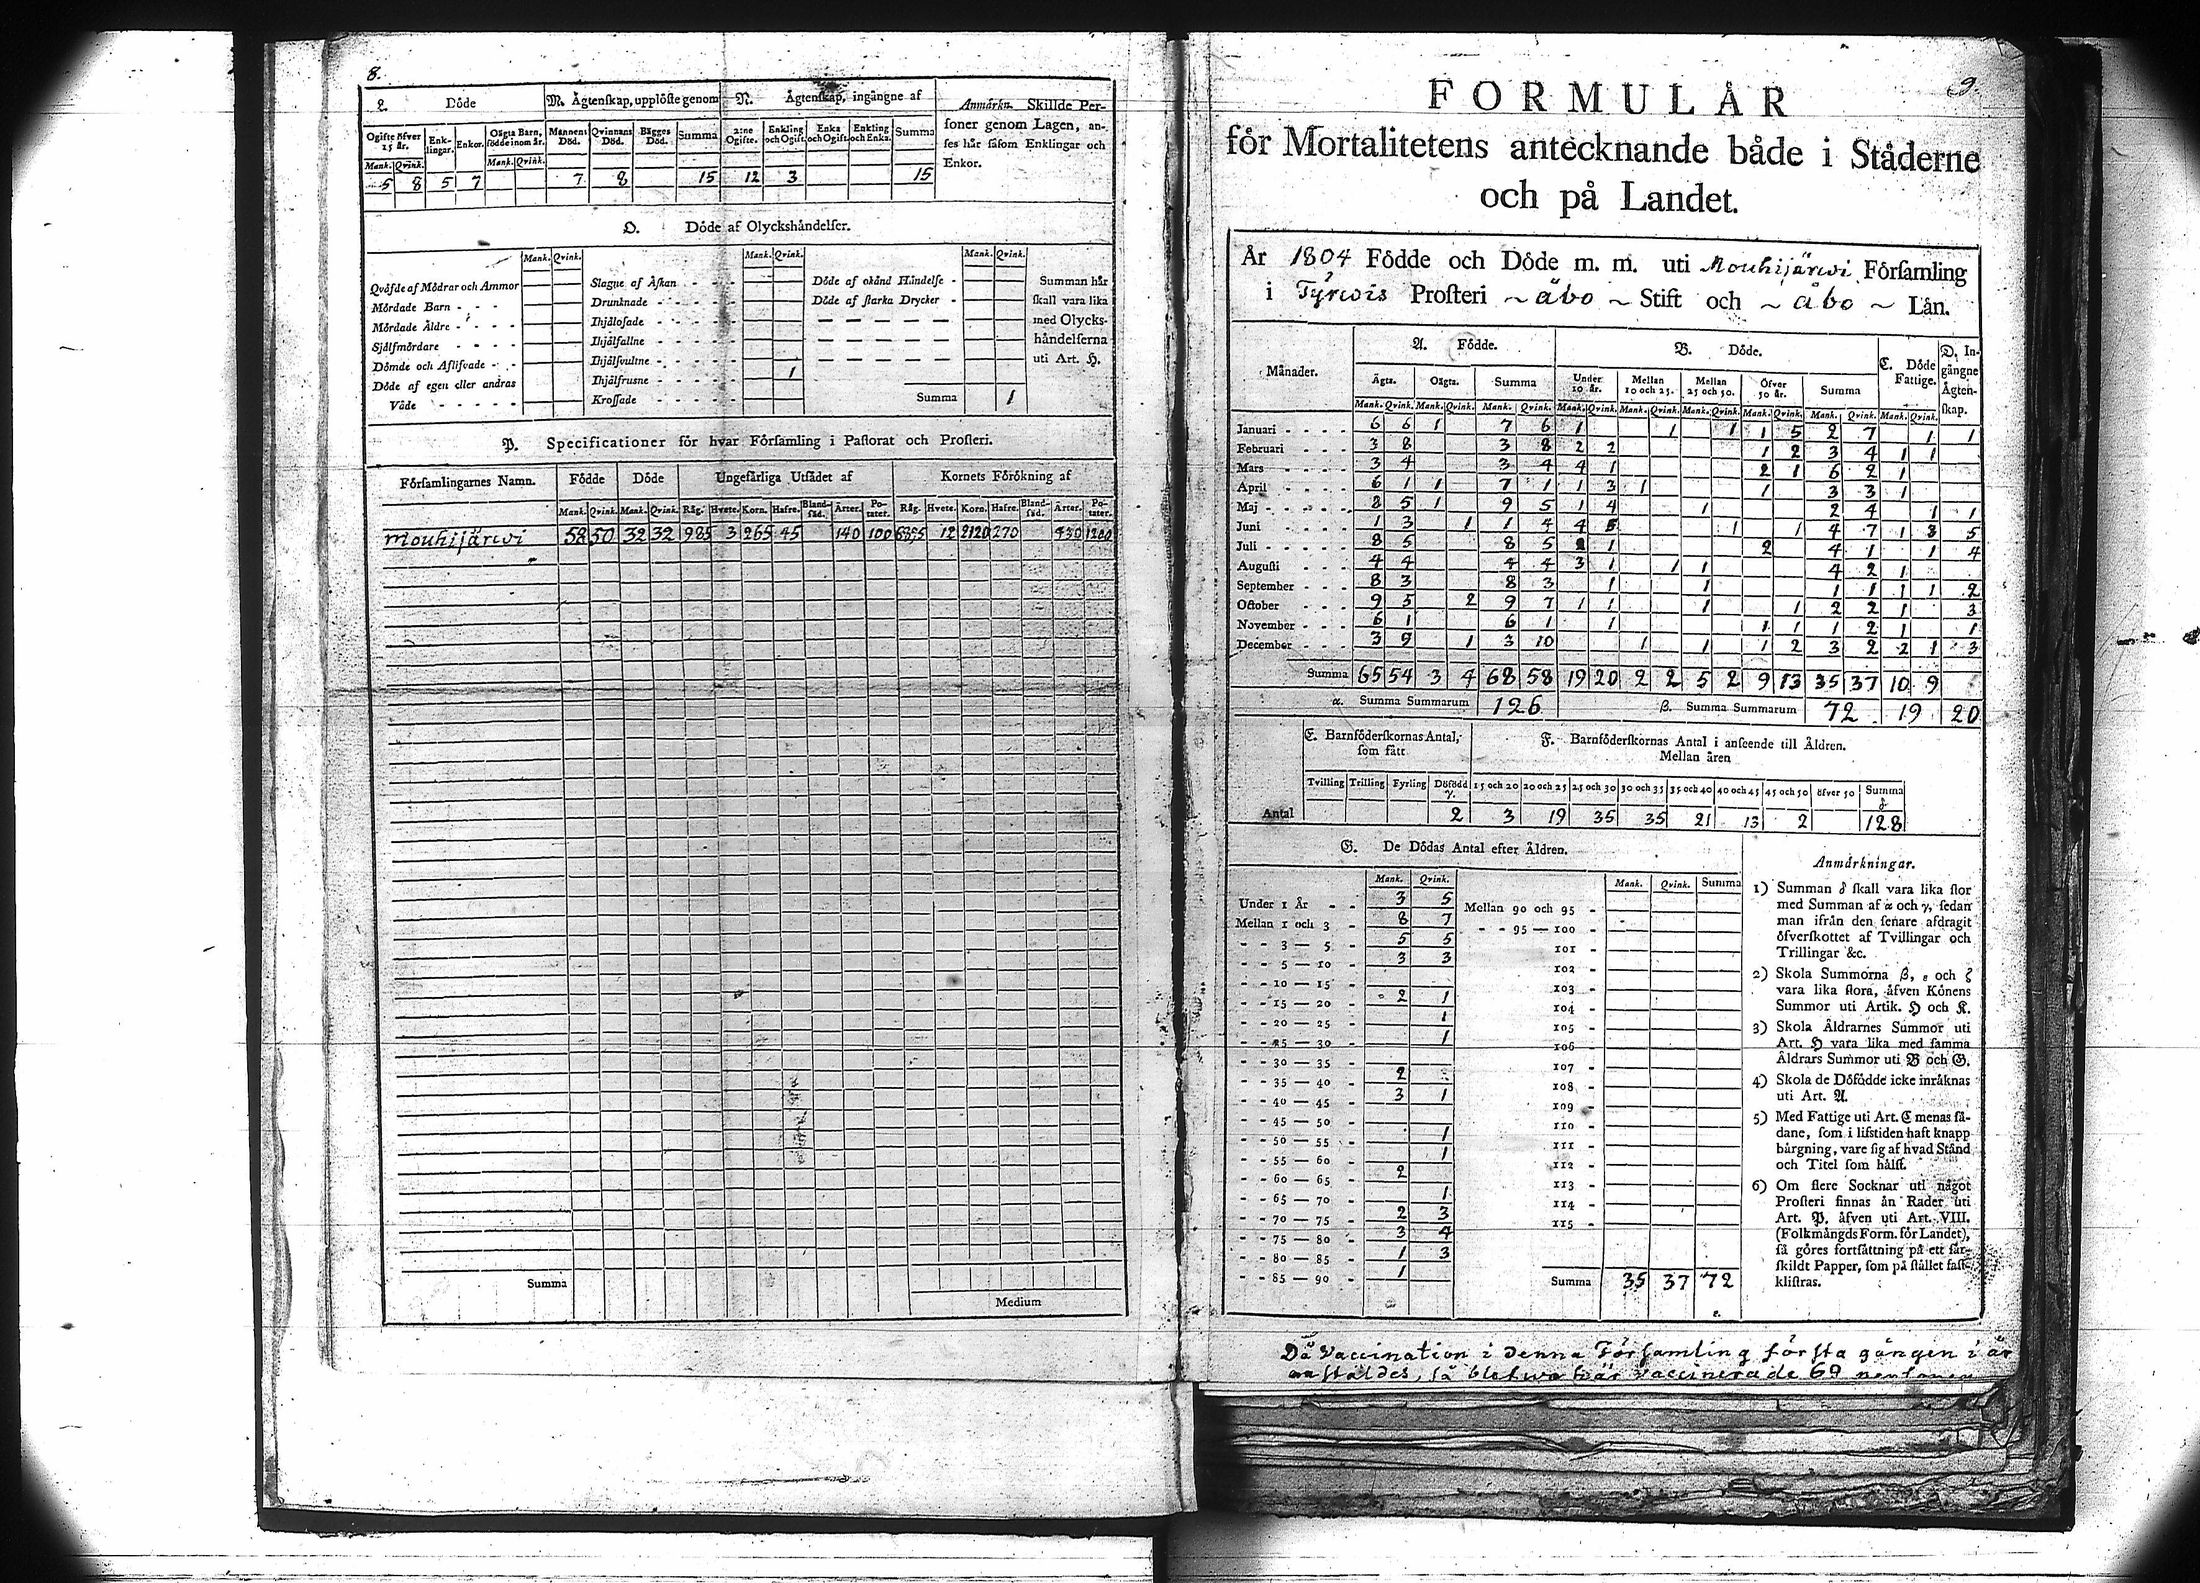 8.
L. Döde
M. Ägtenskap, upplöste genom
N. Ägtenskap, ingångne af
Anmärkn. Skillde Per-
soner genom Lagen, an-
ses här såsom Enklingar och
Enkor.
Ogifte öfver 15 år. Enk-lingar. Enkor. Oägta Barn, födde inom år. Mannens Död. Qvinnans Död. Bägges Död. Summa 2:ne Ogifte. Enkling och Ogift. Enka och Ogift. Enkling och Enka. Summa
Mank. Qvink. Mank. Qvink.
5 8 5 7 7 8 15 12 3 15
O. Döde af Olyckshändelser.
Mank. Qvink. Mank. Qvink. Mank. Qvink.
Qväfde af Mödrar och Ammor
Mördade Barn
Mördade Äldre
Sjelfmördare
Dömde och Aflifvade
Döde af egen eller andras
Våde
Slagne af Åskan
Drunknade
Ihjälosade
Ihjälfallne
Ihjälsvultne
Ihjälfrusne 1
Krossade
Döde af okänd Händelse
Döde af starka Drycker
Summa 1
Summan här
skall vara lika
med Olycks-
händelserna
uti Art. H.
P. Specificationer för hvar Församling i Pastorat och Prosteri.
Församlingarnes Namn. Födde Döde Ungefärliga Utsädet af Kornets Förökning af
Mank. Qvink. Mank. Qvink. Råg. Hvete. Korn. Hafre. Bland-säd. Ärter. Po-tater. Råg. Hvete. Korn. Hafre. Bland-säd. Ärter. Po-tater.
Mouhijärwi 58 50 32 32 985 3 265 45 140 100 12 2120 270 1200
Summa
Medium
9.
FORMULÄR
för Mortalitetens antecknande både i Städerne
och på Landet.
År 1804 Födde och Döde m. m. uti Mouhijärwi Församling
i Tyrwis Prosteri ~ åbo ~ Stift och ~ åbo ~ Län.
Månader. A. Födde. B. Döde. C. Döde Fattige. D. In-gångne Ägten-skap.
Ägta. Oägta. Summa Under 10 år. Mellan 10 och 25. Mellan 25 och 50. Öfver 50 år. Summa
Mank. Qvink. Mank. Qvink. Mank. Qvink. Mank. Qvink. Mank. Qvink. Mank. Qvink. Mank. Qvink. Mank. Qvink. Mank. Qvink.
Januari 6 6 1 7 6 1 1 1 1 5 2 7 1 1
Februari 3 8 3 8 2 2 1 2 3 4 1 1
Mars 3 4 3 4 4 1 2 1 6 2 1
April 6 1 1 7 1 1 3 1 1 3 3 1
Maj 8 5 1 9 5 1 4 1 2 4 1 1
Juni 1 3 1 1 4 4 5 1 1 4 7 1 3 5
Juli 8 5 8 5 2 1 2 4 1 1 4
Augusti 4 4 4 4 3 1 1 1 4 2 1
September 8 3 8 3 1 1 1 1 1 1 2
October 9 5 2 9 7 1 1 1 1 2 2 1 3
November 6 1 6 1 1 1 1 1 2 1 1
December 3 9 1 3 10 1 1 1 2 3 2 2 1 3
Summa 65 54 3 4 68 58 19 20 2 2 5 2 9 13 35 37 10 9
α. Summa Summarum 126 β. Summa Summarum 72 19 20
E. Barnföderskornas Antal,
som fått
F. Barnföderskornas Antal i anseende till Åldren.
Mellan åren
Tvilling Trilling Fyrling Döfödd γ. 15 och 20 20 och 25 25 och 30 30 och 35 35 och 40 40 och 45 45 och 50 öfver 50 Summa δ
Antal 2 3 19 35 35 21 13 2 128
G. De Dödas Antal efter Åldren.
Mank. Qvink. Mank. Qvink. Summa
Under 1 År 3 5
Mellan 1 och 3 8 7
3 — 5 5 5
5 — 10 3 3
10 — 15
15 — 20 2 1
20 — 25 1
25 — 30 1
30 — 35
35 — 40 2
40 — 45 3 1
45 — 50
50 — 55 1
55 — 60 1
60 — 65 2
65 — 70 1
70 — 75 2 3
75 — 80 3 4
80 — 85 1 3
85 — 90 1
Mellan 90 och 95
95 — 100
101
102
103
104
105
106
107
108
109
110
111
112
113
114
115
Summa 35 37 72
ε.
Anmärkningar.
1) Summan δ skall vara lika stor
med Summan af α och γ, sedan
man ifrån den senare afdragit
öfverskottet af Tvillingar och
Trillingar &c.
2) Skola Summorna β, ε och ζ
vara lika stora, äfven Könens
Summor uti Artik. H och K.
3) Skola Åldrarnes Summor uti
Art. H vara lika med samma
Åldrars Summor uti B och G.
4) Skola de Döfödde icke inräknas
uti Art. A.
5) Med Fattige uti Art. C menas så-
dane, som i lifstiden haft knapp
bärgning, vare sig af hvad Stånd
och Titel som hälst.
6) Om flere Socknar uti något
Prosteri finnas än Rader uti
Art. P. äfven uti Art. VIII.
(Folkmängds Form. för Landet),
så göres fortsättning på ett sär-
skildt Papper, som på stället fast-
klistras.
Då Vaccination i denna Församling första gången i år
anstäldes, så blefwo här vaccinerade 69 personer